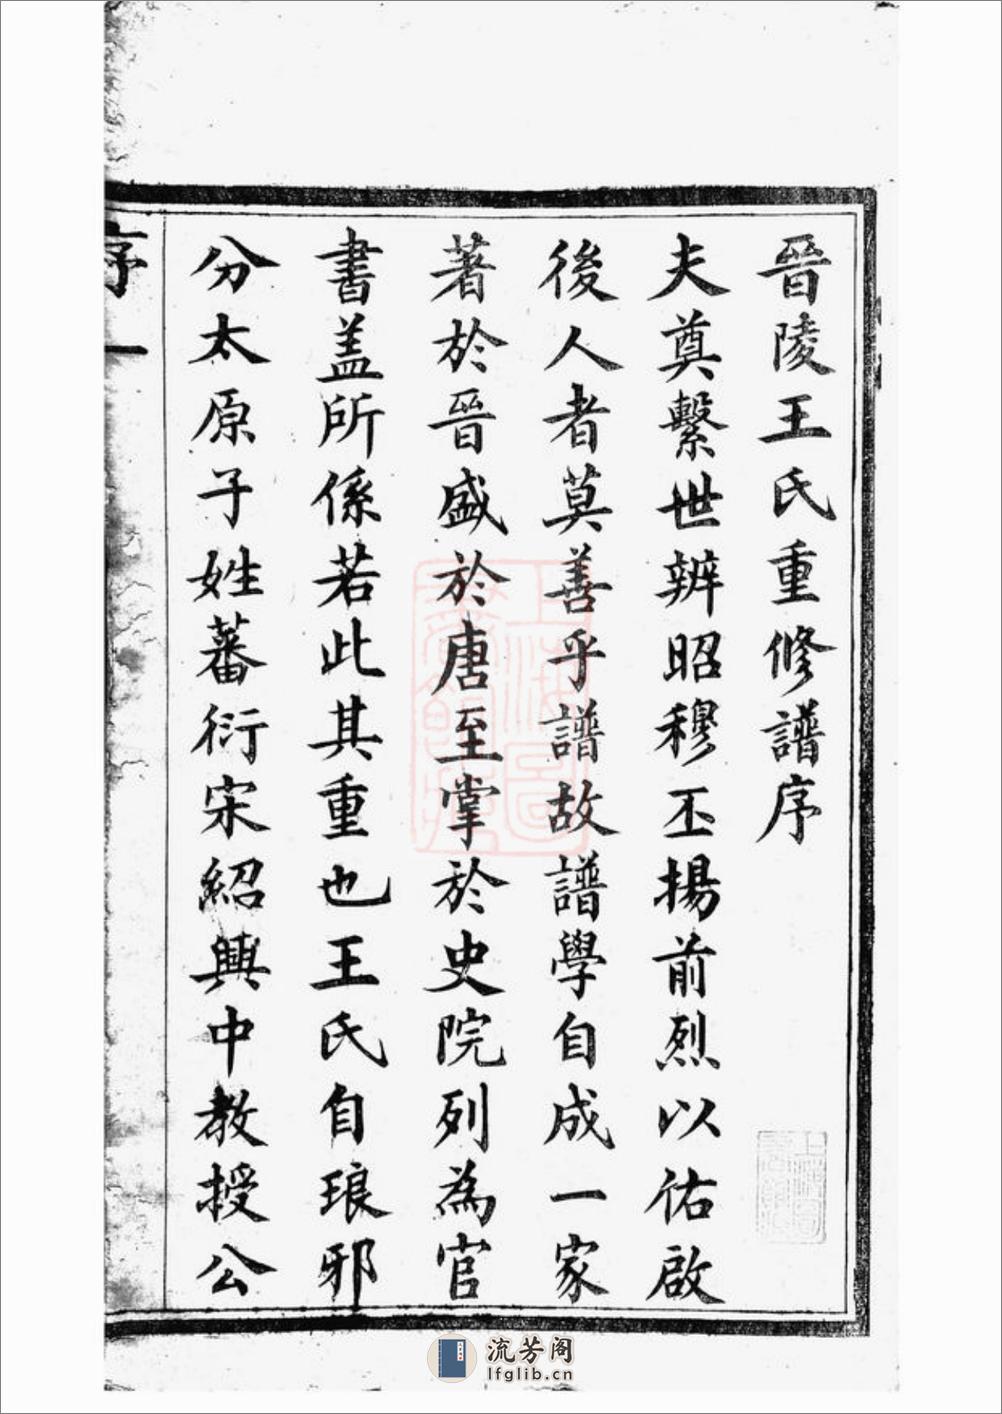 晉陵王氏重修譜序
夫奠繫世辨昭穆丕揚前烈以佑啟
後人者莫善乎譜故譜學自成一家
著於晉盛於唐至掌於史院列為官
書盖所係若此其重也王氏自琅邪
分太原子姓蕃衍宋紹興中教授公
序 一
流芳阁
lfglib.cn